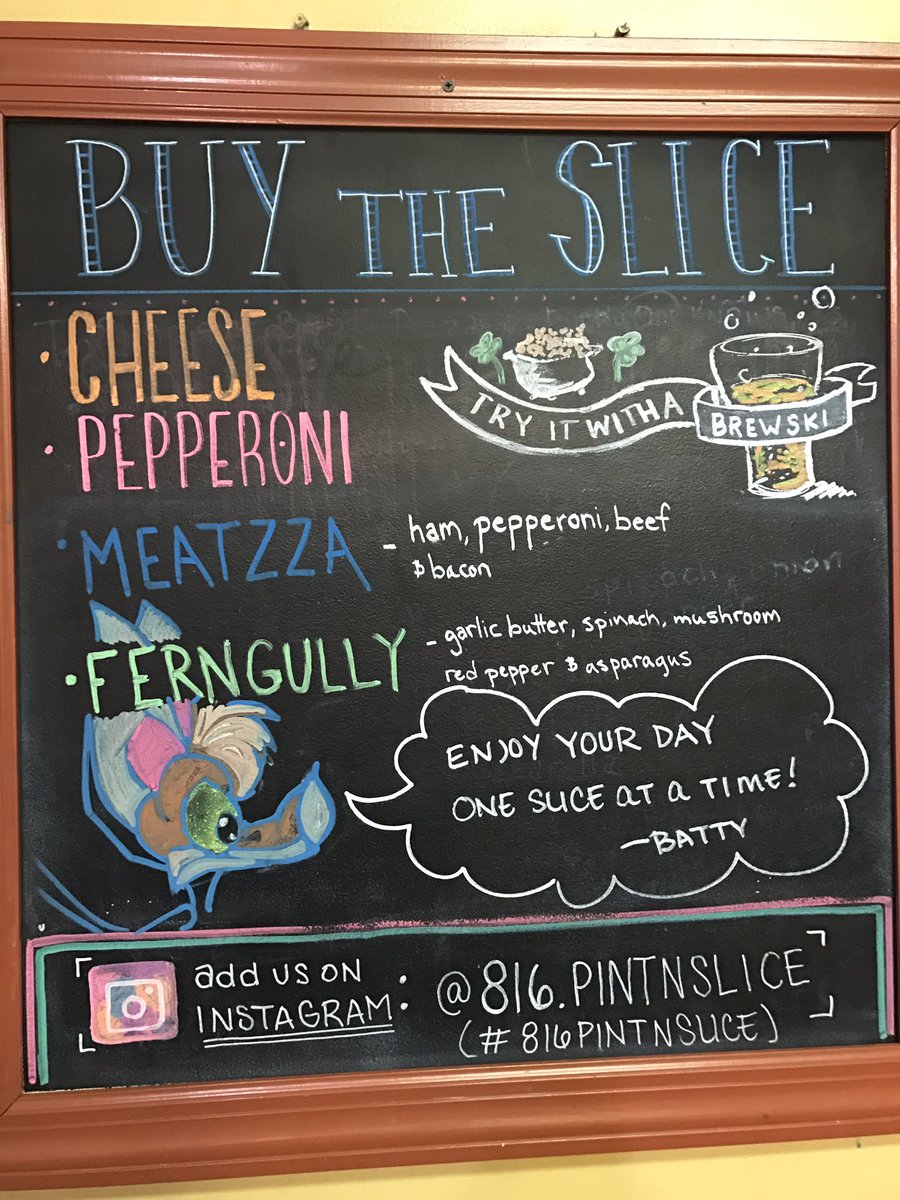 BUY THE SLICE
• CHEESE
• PEPPERONI
TRY IT WITH A BREWSKI
• MEATZZA - ham, pepperoni, beef
& bacon
• FERNGULLY - garlic butter, spinach, mushroom
red pepper & asparagus
ENJOY YOUR DAY
ONE SLICE at a TIME!
—BATTY
add us on
INSTAGRAM: @816.PINTNSLICE
(#816PINTNSLICE)